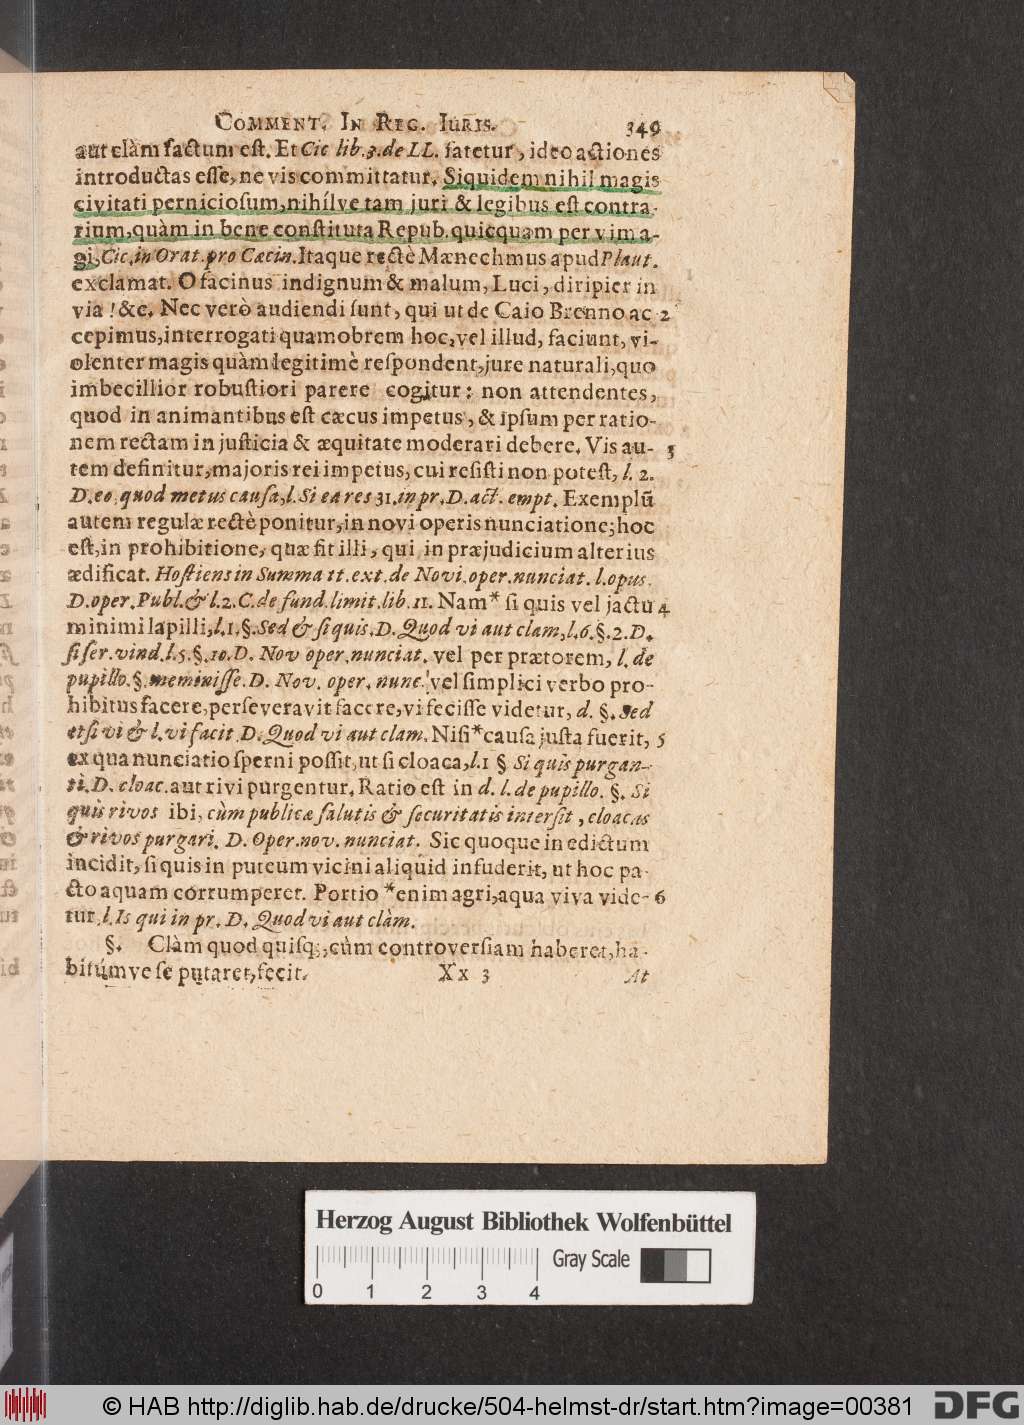 COMMENT. IN REG. IURIS. 349
aut clàm factum est. Et Cic lib. 3. de LL. fatetur, ideo actiones
introductas esse, ne vis committatur. Siquidem nihil magis
civitati perniciosum, nihilve tam juri & legibus est contra-
rium, quàm in bene constituta Repub. quicquam per vim a-
gi, Cic. in Orat. pro Cæcin. Itaque rectè Mænechmus apud Plaut.
exclamat. O facinus indignum & malum, Luci, diripier in
via ! &c. Nec verò audiendi sunt, qui ut de Caio Brenno ac 2
cepimus, interrogati quamobrem hoc, vel illud, faciunt, vi-
olenter magis quàm legitimè respondent, jure naturali, quo
imbecillior robustiori parere cogitur: non attendentes,
quod in animantibus est cæcus impetus, & ipsum per ratio-
nem rectam in justicia & æquitate moderari debere. Vis au- 3
tem definitur, majoris rei impetus, cui resisti non potest, l. 2.
D. eo. quod metus causa, l. Si ea res 31. in pr. D. act. empt. Exemplū
autem regulæ rectè ponitur, in novi operis nunciatione; hoc
est, in prohibitione, quæ fit illi, qui in præjudicium alterius
ædificat. Hostiens in Summa tt. ext. de Novi. oper. nunciat. l. opus.
D. oper. Publ. & l. 2. C. de fund. limit. lib. 11. Nam* si quis vel jactu 4
minimi lapilli, l. 1. §. Sed & si quis. D. Quod vi aut clam, l. 6. §. 2. D.
si ser. vind. l. 5. §. 10. D. Nov oper. nunciat. vel per prætorem, l. de
pupillo. §. meminisse. D. Nov. oper. nunc. vel simplici verbo pro-
hibitus facere, perseveravit facere, vi fecisse videtur, d. §. Sed
etsi vi & l. vi facit D. Quod vi aut clam. Nisi* causa justa fuerit, 5
ex qua nunciatio sperni possit, ut si cloaca, l. 1 § Si quis purgan-
ti. D. cloac. aut rivi purgentur. Ratio est in d. l. de pupillo. §. Si
quis rivos ibi, cùm publicæ salutis & securitatis intersit, cloacas
& rivos purgari. D. Oper. nov. nunciat. Sic quoque in edictum
incidit, si quis in puteum vicini aliquid infuderit, ut hoc pa-
cto aquam corrumperet. Portio *enim agri, aqua viva vide- 6
tur l. Is qui in pr. D. Quod vi aut clàm.
§. Clàm quod quisq;, cùm controversiam haberet, ha-
bitúmve se putaret, fecit.
Xx 3 At
Herzog August Bibliothek Wolfenbüttel
Gray Scale
0 1 2 3 4
© HAB http://diglib.hab.de/drucke/504-helmst-dr/start.htm?image=00381 DFG